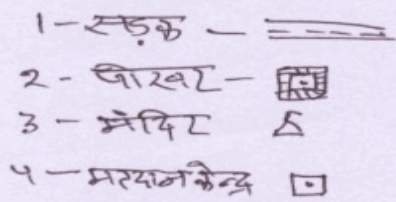 1 - सड़क -
2 - पोखर -
3 - मंदिर
4 - मतदान केन्द्र